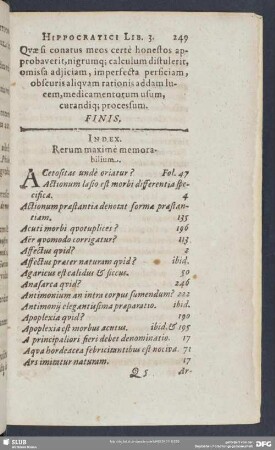 HIPPOCRATICI LIB. 3. 249
Quæ si conatus meos certè honestos ap-
probaverit, nigrumq; calculum distulerit,
omissa adjiciam, imperfecta perficiam,
obscuris aliquam rationis addam lu-
cem, medicamentorum usum,
curandiq; processum.
FINIS.
INDEX.
Rerum maximè memora-
bilium.
ACetositas undè oriatur? Fol. 47
Actionum læsio est morbi differentia spe-
cifica. 4
Actionum præstantia denotat formæ præstan-
tiam. 135
Acuti morbi quotuplices? 196
Aër quomodo corrigatur? 113
Affectus quid? 2
Affectus præter naturam quid? ibid.
Agaricus est calidus & siccus. 50
Anasarca quid? 246
Antimonium an intra corpus sumendum? 222
Antimonij elegantissima præparatio. ibid.
Apoplexia quid? 190
Apoplexia est morbus acutus. ibid. & 195
A principaliori fieri debet denominatio. 17
Aqua hordeacea febricitantibus est nociva. 71
Ars imitatur naturam. 17
Q 5 Ar-
SLUB
DFG